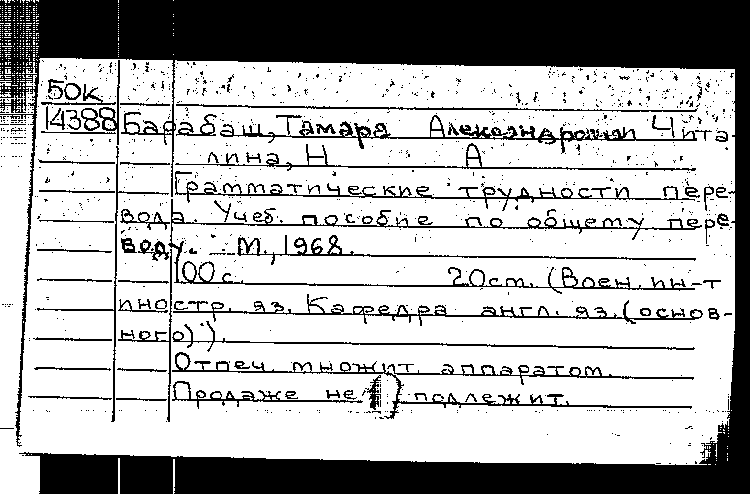 50к
14388 Барабаш, Тамара Александровна Чита-
лина, Н А
Грамматические трудности пере-
вода. Учеб. пособие по общему пере-
воду. М., 1968.
100 с. 20 см. (Воен. ин-т
иностр. яз. Кафедра англ. яз. (основ-
ного)).
Отпеч. множит. аппаратом.
Продаже не подлежит.